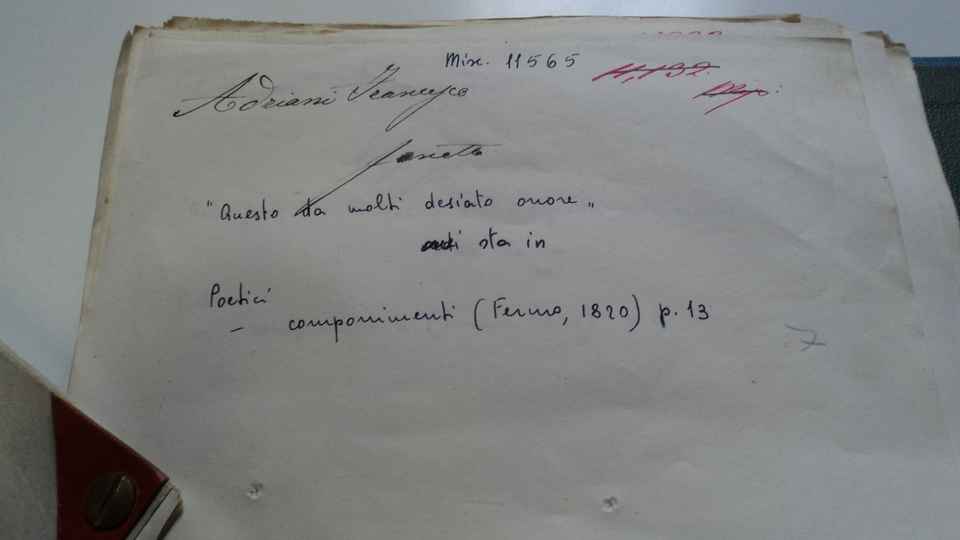 Misc. 11565
Adriani Francesco
Sonetto
"Questo da molti desiato onore"
sta in
Poetici
— componimenti (Fermo, 1820) p. 13
7